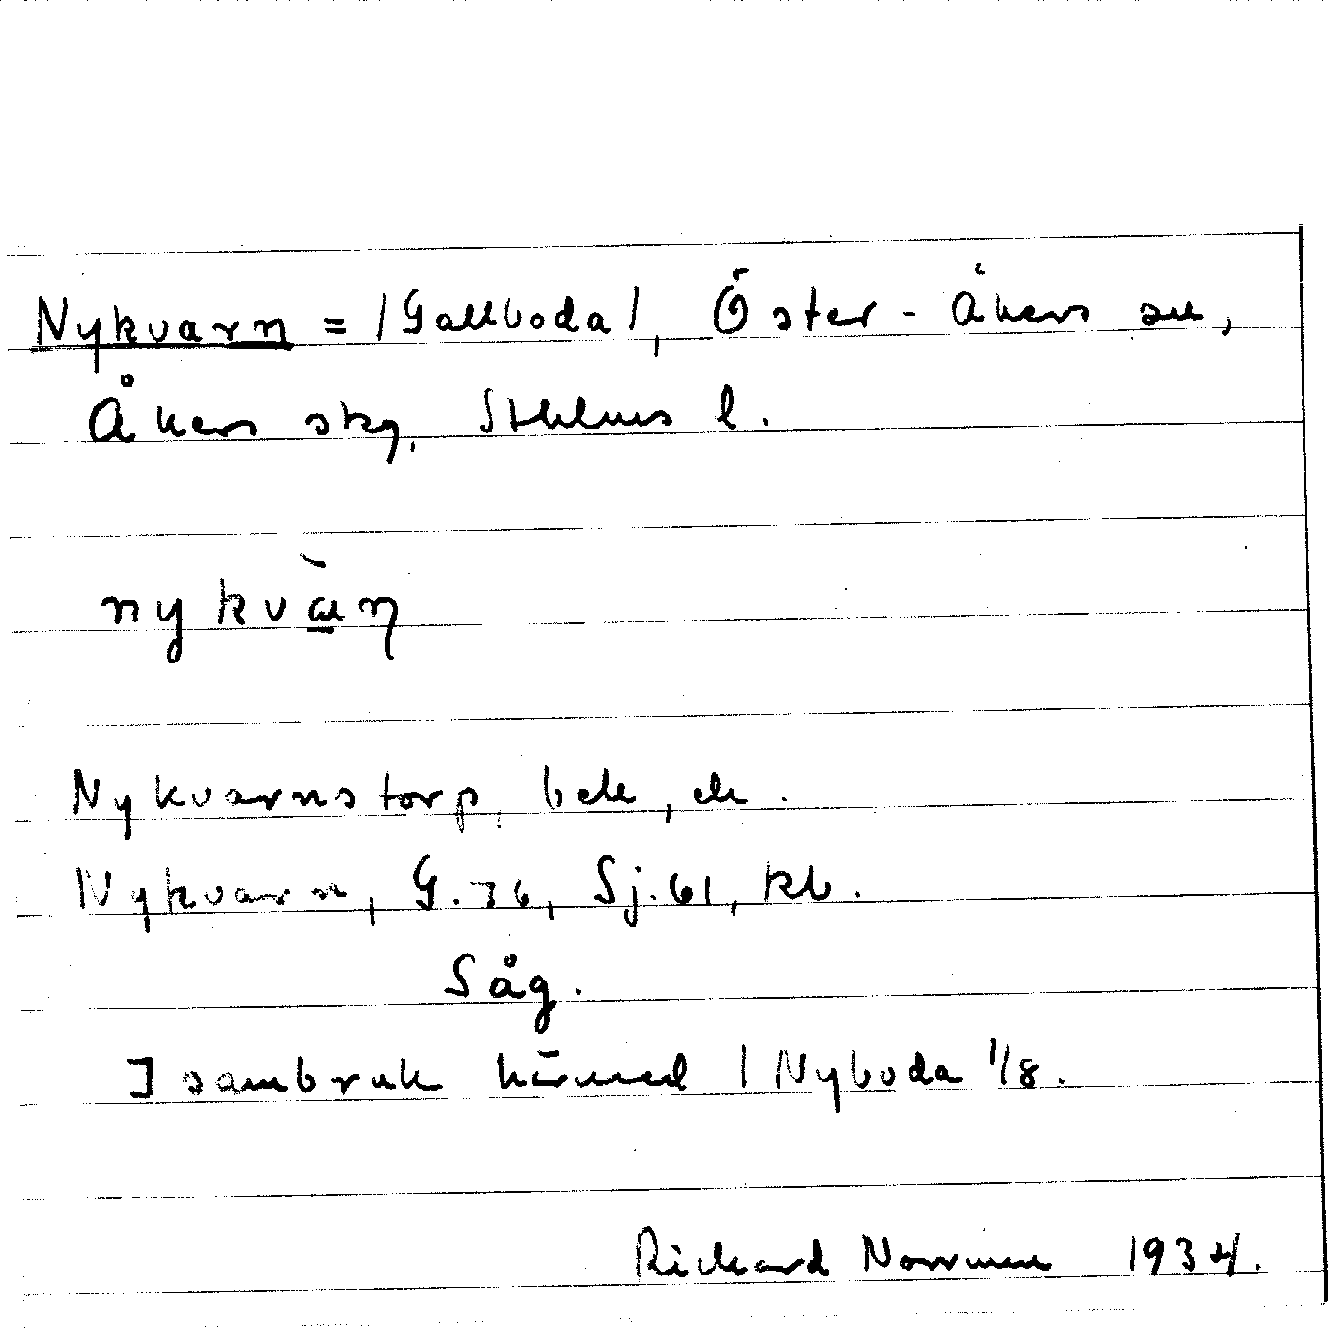 Nykvarn = /Gallboda/, Öster-Åkers sn,
Åkers skg, Sthlms l.
nykvàṇ
Nykvarnstorp,
Nykvarn, G. 36, Sj. 61, kb.
Såg.
I sambruk härmed / Nyboda 1/8.
Rickard Norrman 1934.